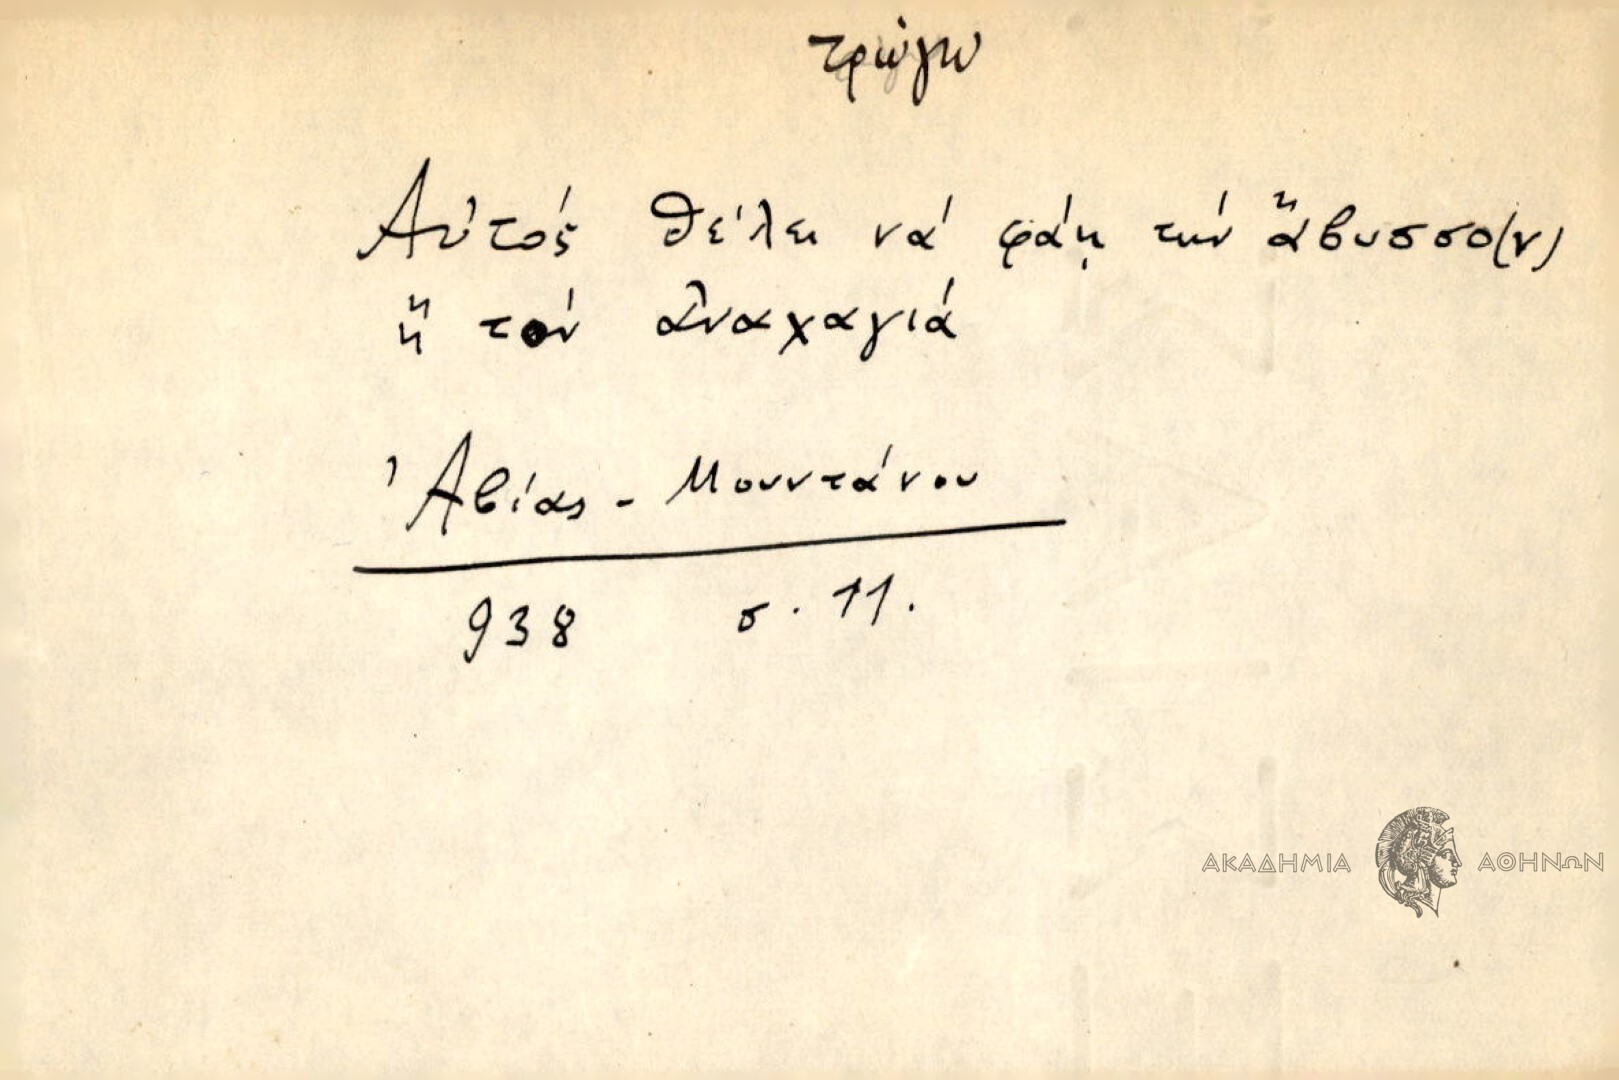 τρώγω
Αὐτός θέλει νά φάῃ τήν ἄβυσσο(ν)
ἤ τόν ἀναχαγιά
Ἀβίας - Μουντάνου
938 σ. 11.
ΑΚΑΔΗΜΙΑ ΑΘΗΝΩΝ